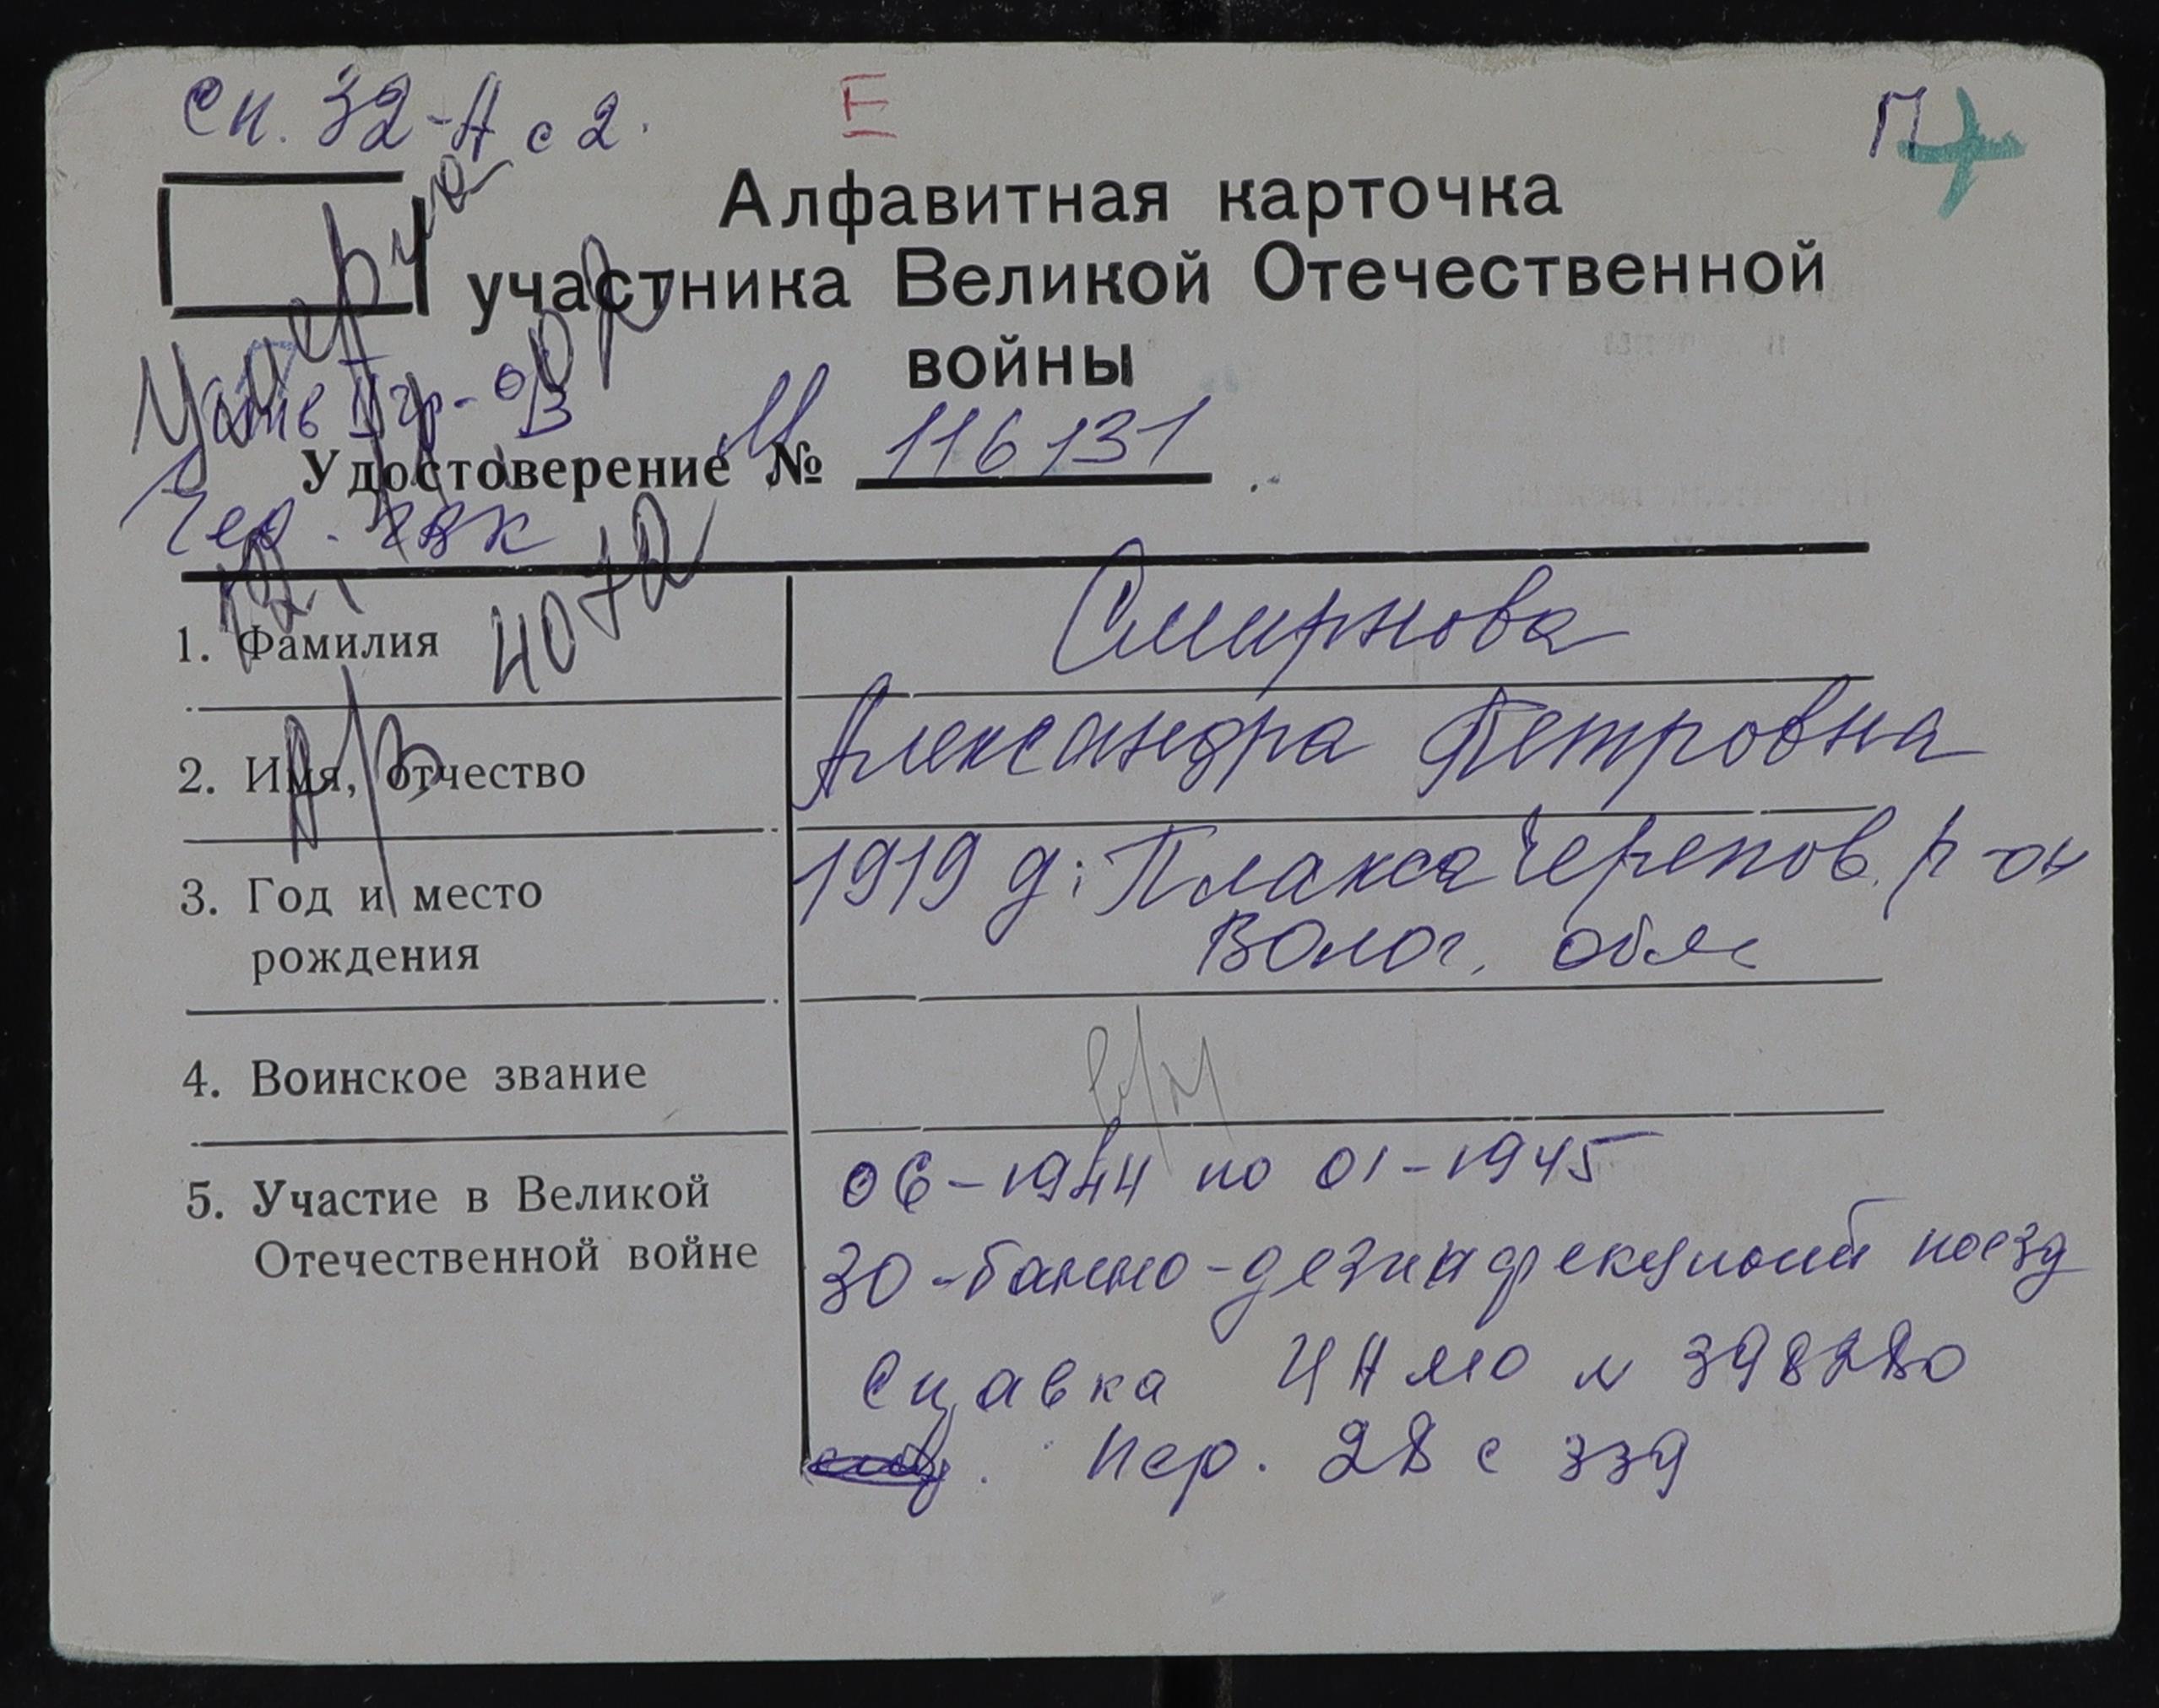 Сп. 32-А с 2.
Е
П
Алфавитная карточка
участника Великой Отечественной
войны
Умерла
II гр-ОВ
Удостоверение № М 116131
Чер. ГВК
1. Фамилия Смирнова
2. Имя, отчество Александра Петровна
3. Год и место рождения 1919 д. Плакса Черепов. р-он
Волог. обл
4. Воинское звание в/м
5. Участие в Великой Отечественной войне 06-1944 по 01-1945
30-банно-дезинфекционый поезд
Справка ЦАМО N 398280
Пер. 28 с 339